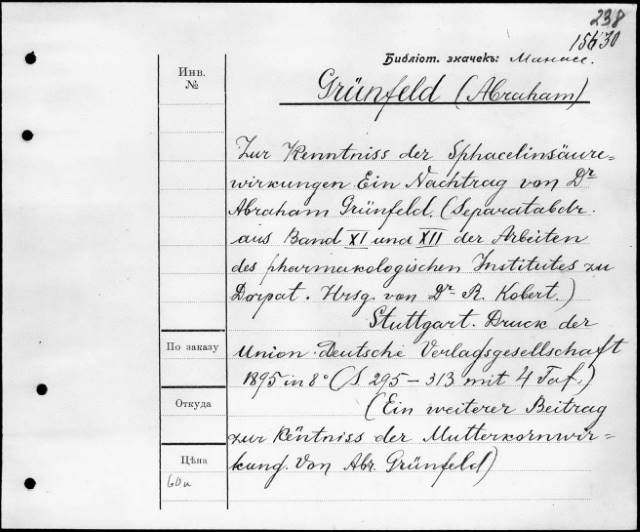 238
15630
Библіот. значекъ: Минасс.
Инв.
№
Grünfeld (Abraham)
Zur Kenntniss der Sphacelinsäure=
wirkungen. Ein Nachtrag von Dr
Abraham Grünfeld. (Separatabdr.
aus Band XI und XII der Arbeiten
des pharmakologischen Institutes zu
Dorpat. Hrsg. von Dr R. Kobert.)
Stuttgart. Druck der
По заказу
Union Deutsche Verlagsgesellschaft
1895 in 8° (S 295–313 mit 4 Taf.)
Откуда
(Ein weiterer Beitrag
zur Ken̄tniss der Mutterkornwir=
Цѣна
kung. Von Abr. Grünfeld)
60 к